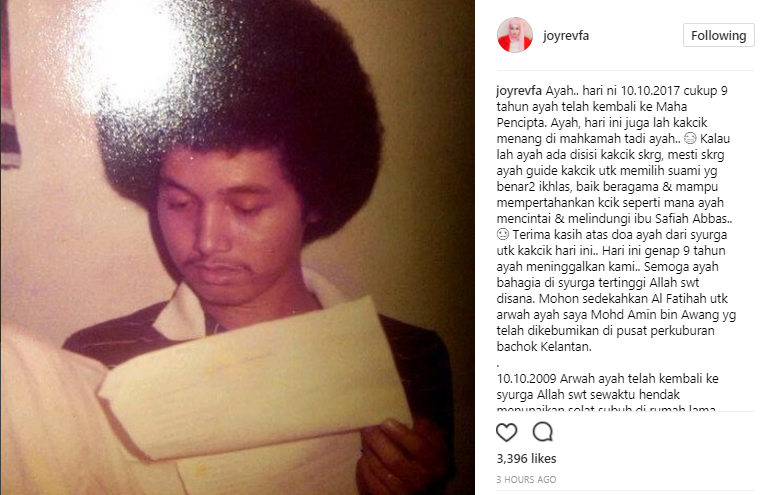 joyrevfa
Following
joyrevfa Ayah.. hari ni 10.10.2017 cukup 9
tahun ayah telah kembali ke Maha
Pencipta. Ayah, hari ini juga lah kakcik
menang di mahkamah tadi ayah.. 😔 Kalau
lah ayah ada disisi kakcik skrg, mesti skrg
ayah guide kakcik utk memilih suami yg
benar2 ikhlas, baik beragama & mampu
mempertahankan kcik seperti mana ayah
mencintai & melindungi ibu Safiah Abbas..
😔 Terima kasih atas doa ayah dari syurga
utk kakcik hari ini.. Hari ini genap 9 tahun
ayah meninggalkan kami.. Semoga ayah
bahagia di syurga tertinggi Allah swt
disana. Mohon sedekahkan Al Fatihah utk
arwah ayah saya Mohd Amin bin Awang yg
telah dikebumikan di pusat perkuburan
bachok Kelantan.
.
10.10.2009 Arwah ayah telah kembali ke
syurga Allah swt sewaktu hendak
menunaikan solat subuh di rumah lama
3,396 likes
3 HOURS AGO